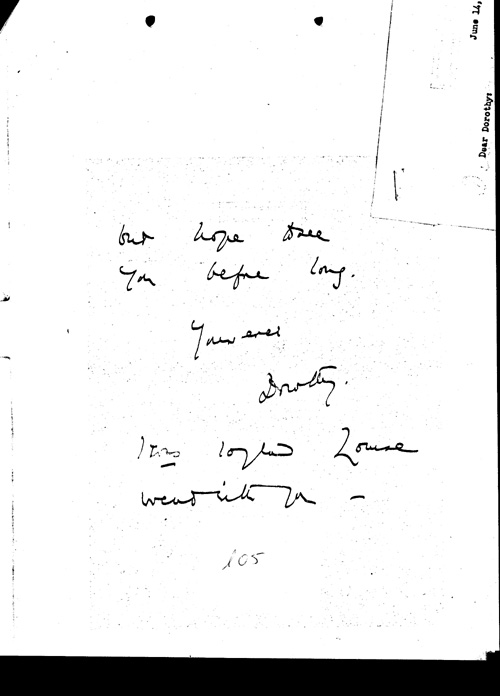 June 14,
Dear Dorothy:
but hope to see
you before long.
Yours ever
Dorothy.
I was so glad Louise
went with you –
105